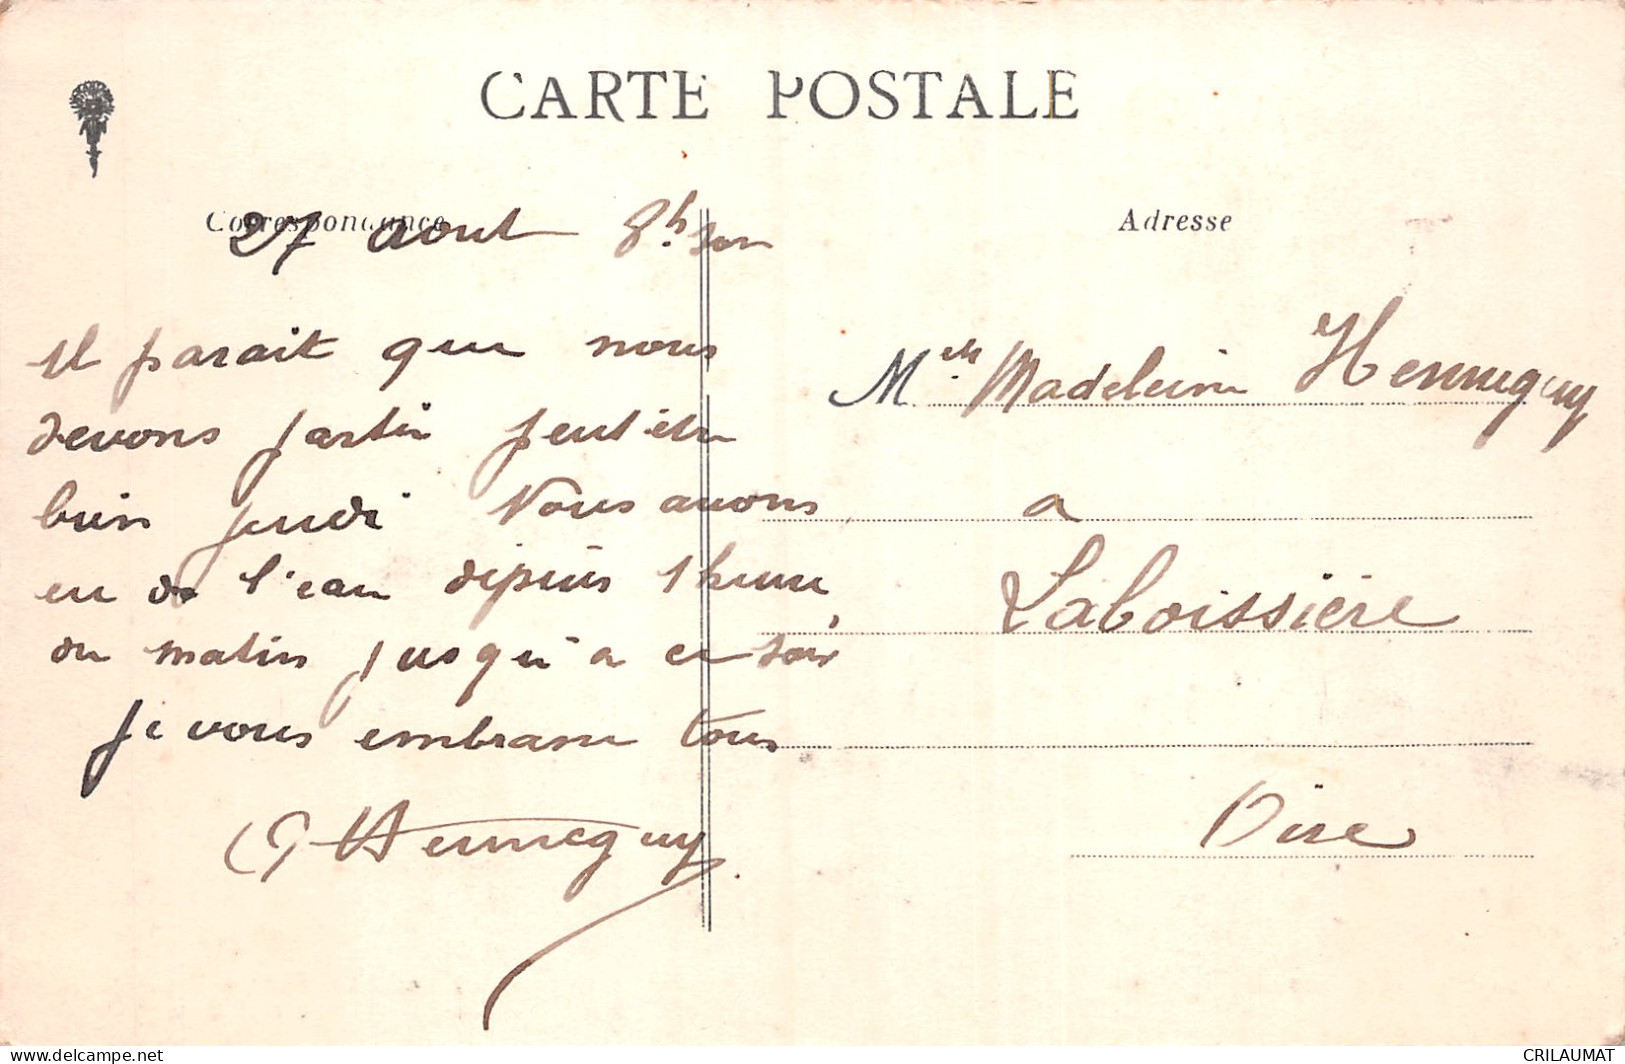 CARTE POSTALE
Correspondance
27 aout 8h soir
Il parait que nous
devons partir peut être
bien jeudi Nous avons
eu de l'eau depuis 1 heure
du matin jusqu'à ce soir
Je vous embrasse tous
G Hennequy
Adresse
Melle Madeleine Hennequy
a
Laboissière
Oise
delcampe.net
CRILAUMAT